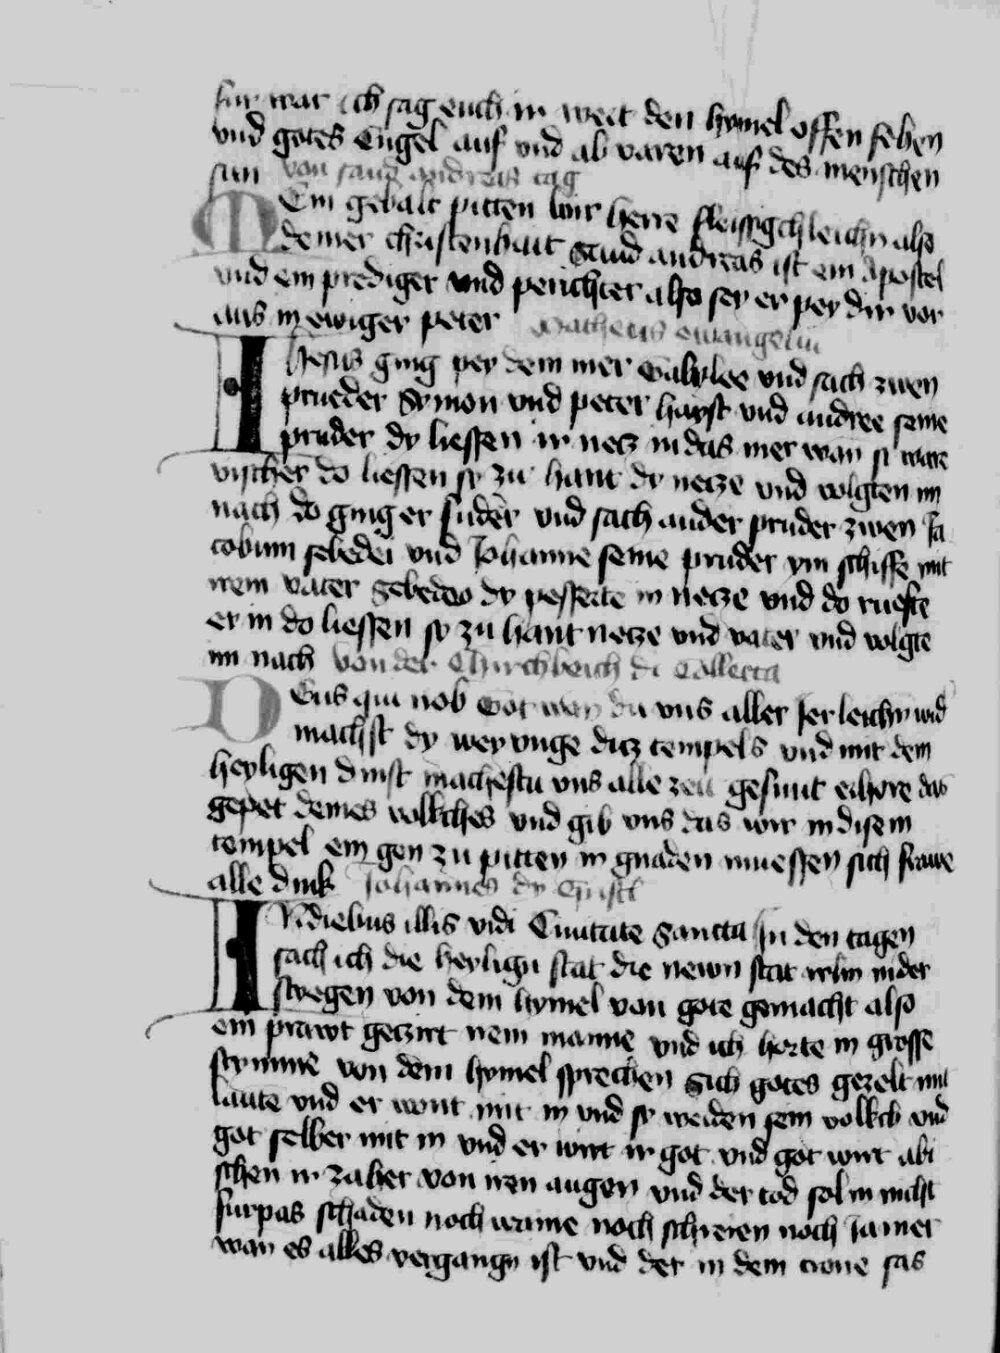 fur war ich sag euch ir wert den hymel offen sehen
vnd gotes Engel auf vnd ab varen auf des menschen
sun von sand andreas tag
Ein gebalt pitten wir herre fleissigchleichn also
deiner christenhait Sand andreas ist ein Apostel
vnd ein prediger vnd perichter also sey er pey dir vor
uns in ewiger peter Matheus ewangelui
Ihesus ging pey dem mer Galylee vnd sach zwen
prueder Symon vnd peter hayst vnd andree seine
pruder dy liessen ir netz in das mer wan si ware
vischer do liessen sy zu hant dy netze vnd volgten im
nach do ging er furder vnd sach ander pruder zwen Ja
cobum sebedei vnd Johanne seine pruder ym schiffe mit
irem vater Sebedeo dy pesserte ir netze vnd do rueffte
er in do liessen sy zu hant netze vnd vater vnd volgte
im nach von der Churchbeich di Collecta
Deus qui nob Got wan du vns aller Jerleichn wid
machst dy weyunge ditz tempels vnd mit dem
heyligen dinst machestu vns alle zeit gesunt erhore das
gepet deines volkches vnd gib vns das wir in disem
tempel ein gen zu pitten in gnaden muessen sich frawe
alle dink Johannes dy Epistl
In diebus illis vidi Ciuitate Sancta In den tagen
sach ich die heylign stat die newn stat irlm nider
stwegen von dem hymel von gote gemacht also
ein prawt geczirt irem manne vnd ich horte in grosse
stymme von dem hymel sprechen Sich gotes gezelt mit
laute vnd er wont mit in vnd sy werden sein volkch vnd
got selber mit in vnd er wirt ir got vnd got wirt abi
schen ir zaher von iren augen vnd der tod sol in nicht
furpas schaden noch waine noch schreien noch Jamer
wan es alles vergangn ist vnd der in dem trone sas